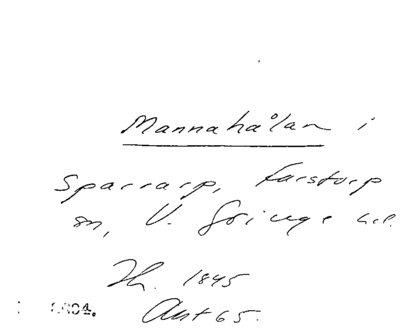 Mannahålan i
Sparrarp, Farstorp
sn, V. Göinge hd.
Th. 1845
Ant 65.